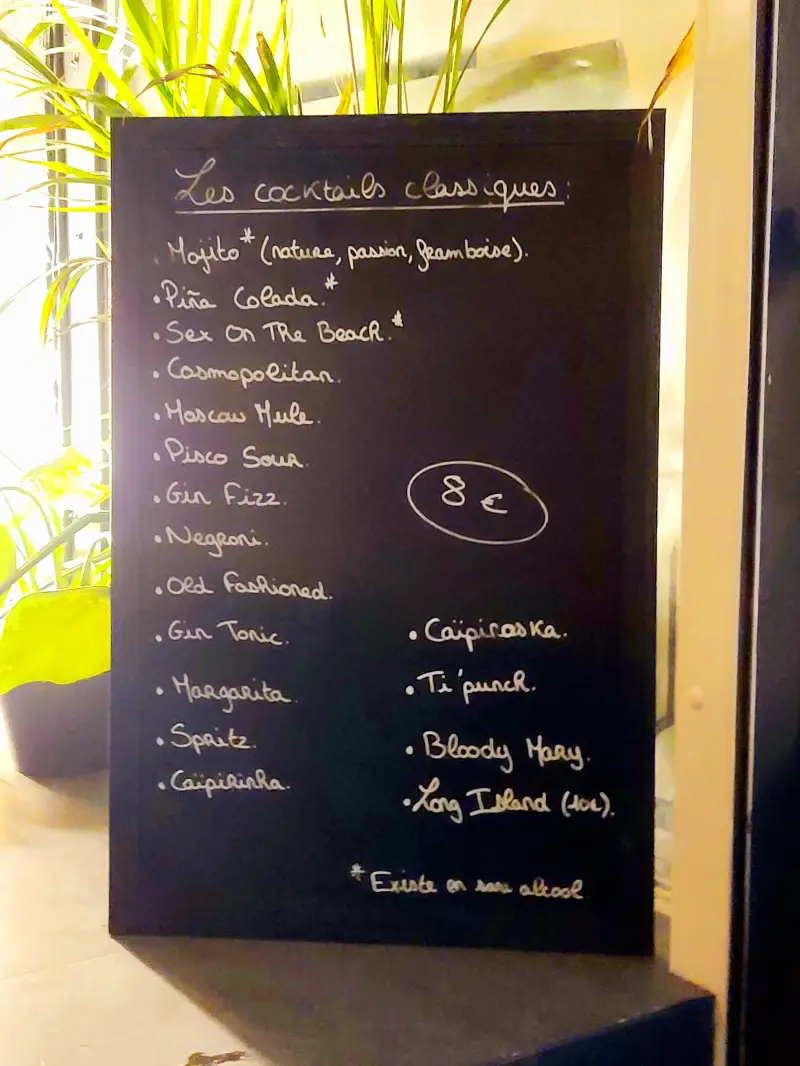 Les cocktails classiques:
• Mojito* (nature, passion, framboise).
• Piña Colada.*
• Sex On The Beach.*
• Cosmopolitan.
• Moscow Mule.
• Pisco Sour.
• Gin Fizz.
8 €
• Negroni.
• Old Fashioned.
• Gin Tonic.
• Caïpiroska.
• Margarita.
• Ti'punch.
• Spritz.
• Bloody Mary.
• Caïpirinha.
• Long Island (10€).
* Existe en sans alcool